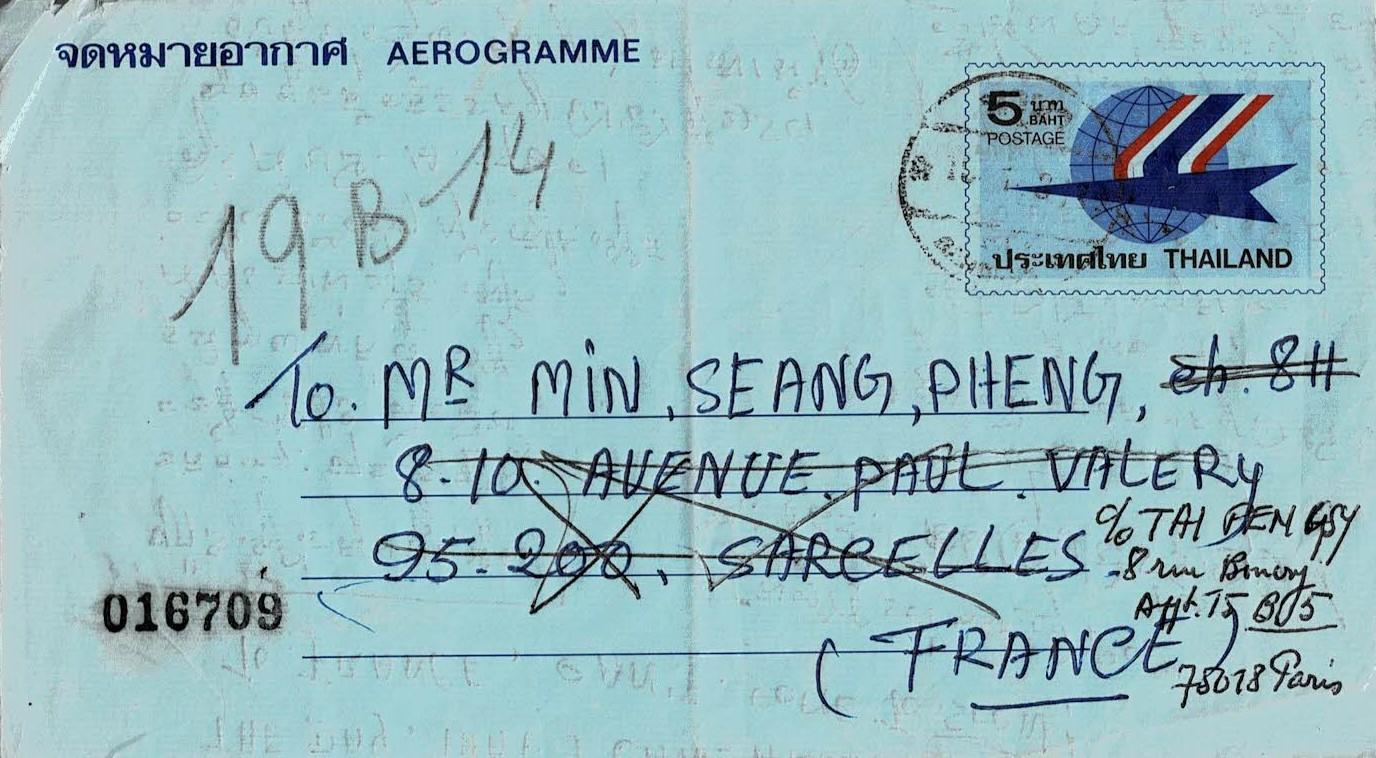 จดหมายอากาศ AEROGRAMME
5 บาท
BAHT
POSTAGE
ประเทศไทย THAILAND
19 B 14
To. MR MIN, SEANG, PHENG, ch. 8H
8.10. AVENUE. PAUL. VALERY
95.200. SARCELLES
c/o TAI
8 rue
T5 B05
(FRANCE)
Paris
016709